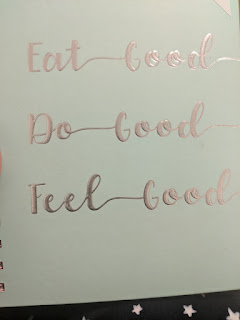 Eat Good
Do Good
Feel Good